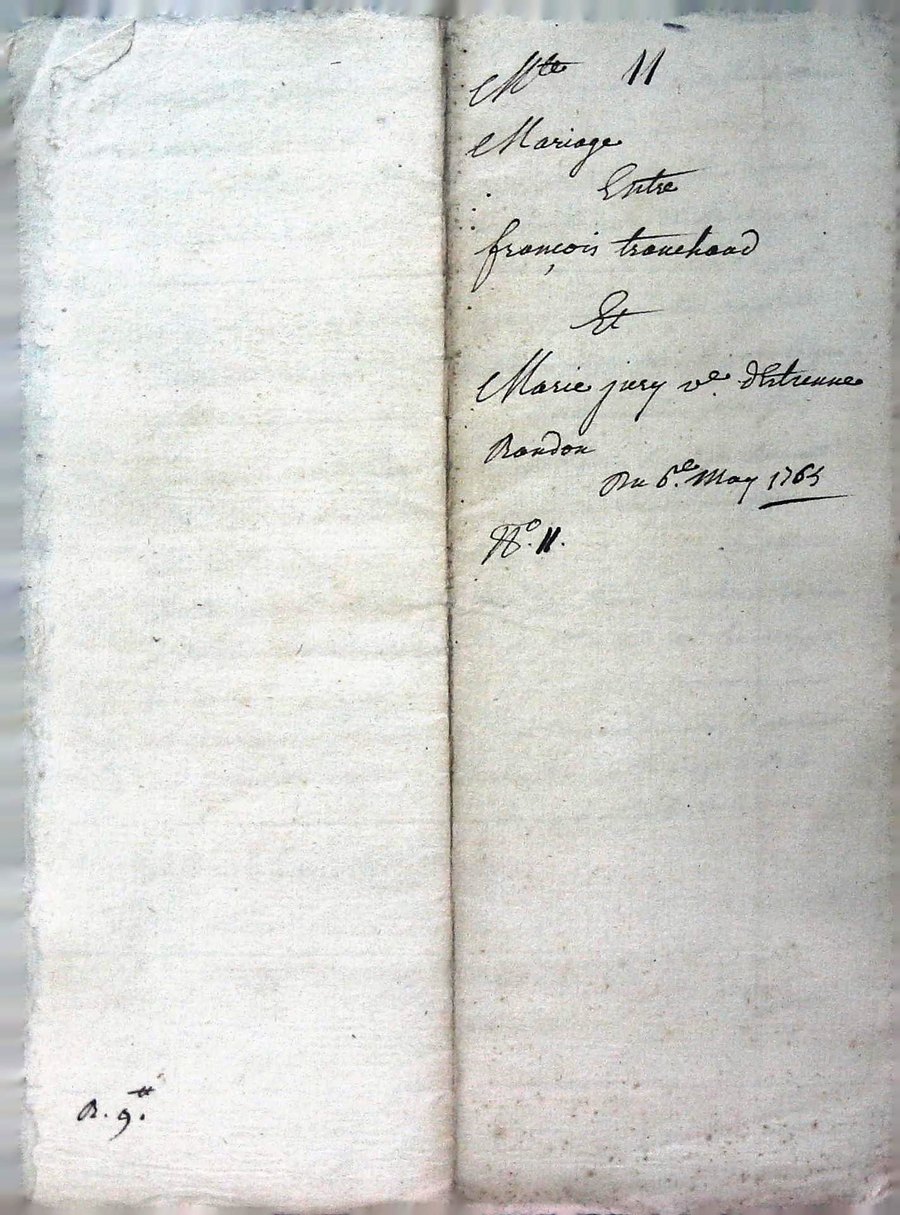 Mte 11
Mariage
Entre
françois tranchand
Et
Marie jury ve. d'Estienne
Randon
Du 6e. May 1765
No. 11.
R. 9.tt